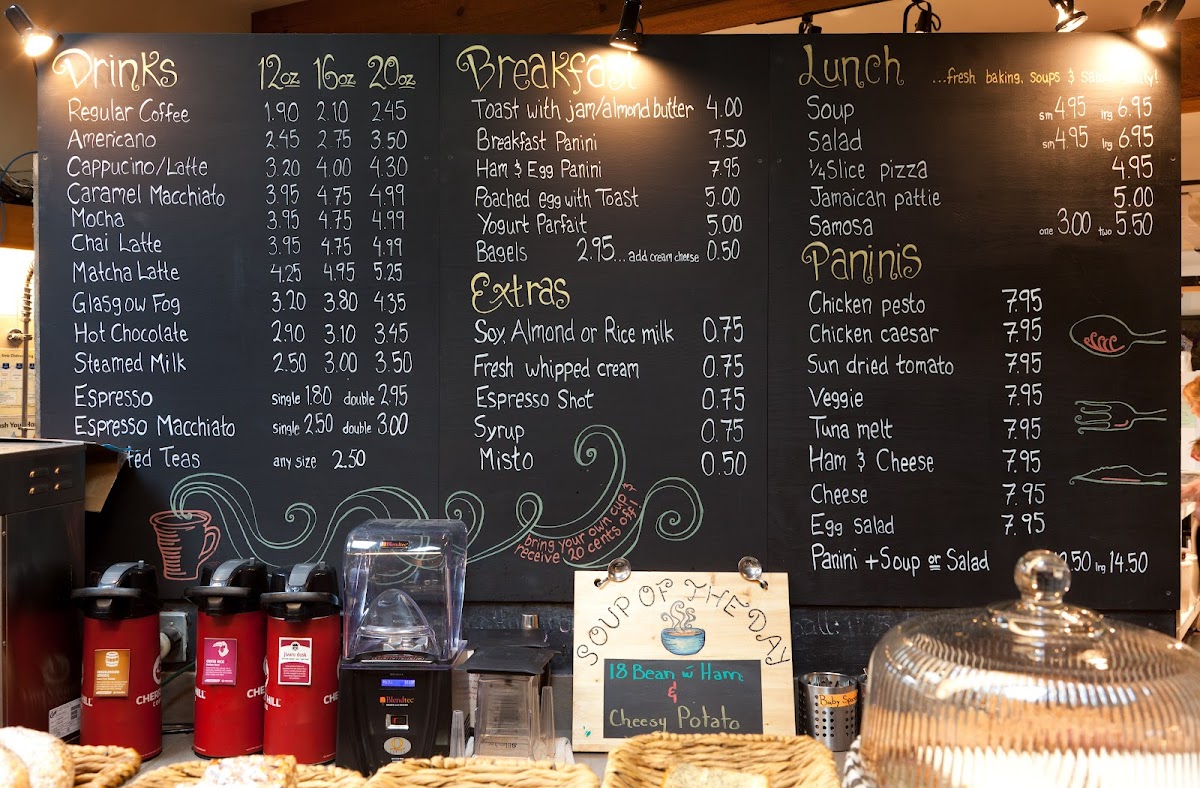 Drinks 12oz 16oz 20oz
Regular Coffee 1.90 2.10 2.45
Americano 2.45 2.75 3.50
Cappucino/Latte 3.20 4.00 4.30
Caramel Macchiato 3.95 4.75 4.99
Mocha 3.95 4.75 4.99
Chai Latte 3.95 4.75 4.99
Matcha Latte 4.25 4.95 5.25
Glasgow Fog 3.20 3.80 4.35
Hot Chocolate 2.90 3.10 3.45
Steamed Milk 2.50 3.00 3.50
Espresso single 1.80 double 2.95
Espresso Macchiato single 2.50 double 3.00
Teas any size 2.50
Breakfast
Toast with jam/almond butter 4.00
Breakfast Panini 7.50
Ham & Egg Panini 7.95
Poached egg with Toast 5.00
Yogurt Parfait 5.00
Bagels 2.95...add cream cheese 0.50
Extras
Soy, Almond or Rice milk 0.75
Fresh whipped cream 0.75
Espresso Shot 0.75
Syrup 0.75
Misto 0.50
bring your own cup &
receive 20 cents off!
Lunch ...fresh baking, soups &
Soup sm 4.95 lrg 6.95
Salad sm 4.95 lrg 6.95
1/4 Slice pizza 4.95
Jamaican pattie 5.00
Samosa one 3.00 two 5.50
Paninis
Chicken pesto 7.95
Chicken caesar 7.95
Sun dried tomato 7.95
Veggie 7.95
Tuna melt 7.95
Ham & Cheese 7.95
Cheese 7.95
Egg salad 7.95
Panini + Soup or Salad lrg 14.50
SOUP OF THE DAY
18 Bean w/ Ham
&
Cheesy Potato
Blendtec
Blendtec